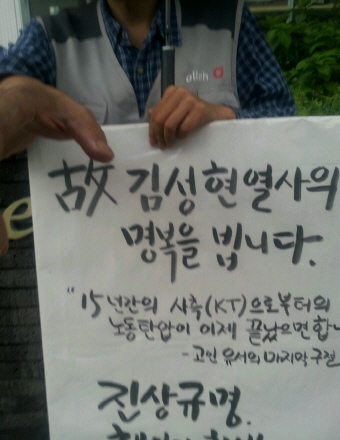 olleh
故 김성현열사의
명복을 빕니다.
"15년간의 사측(KT)으로부터의
노동탄압이 이제 끝났으면합니
-고인 유서의 마지막 구절
진상규명.